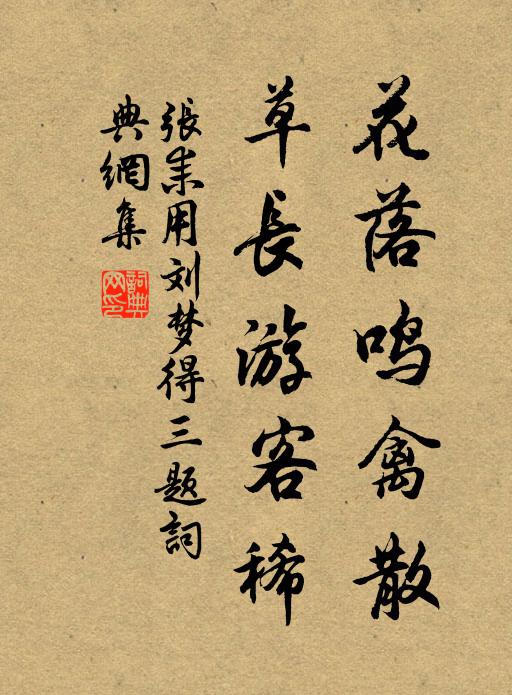 花落鸣禽散
草長游客稀
張耒用刘梦得三题詞
典網集
詞典網印